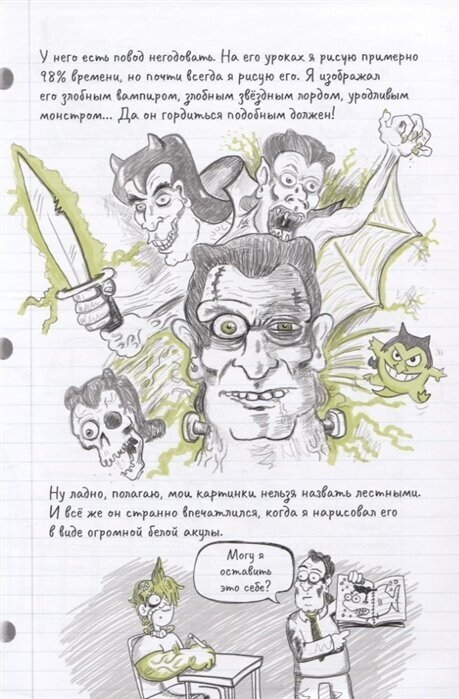 У него есть повод негодовать. На его уроках я рисую примерно
98% времени, но почти всегда я рисую его. Я изображал
его злобным вампиром, злобным звёздным лордом, уродливым
монстром... Да он гордиться подобным должен!
Ну ладно, полагаю, мои картинки нельзя назвать лестными.
И всё же он странно впечатлился, когда я нарисовал его
в виде огромной белой акулы.
Могу я
оставить
это себе?